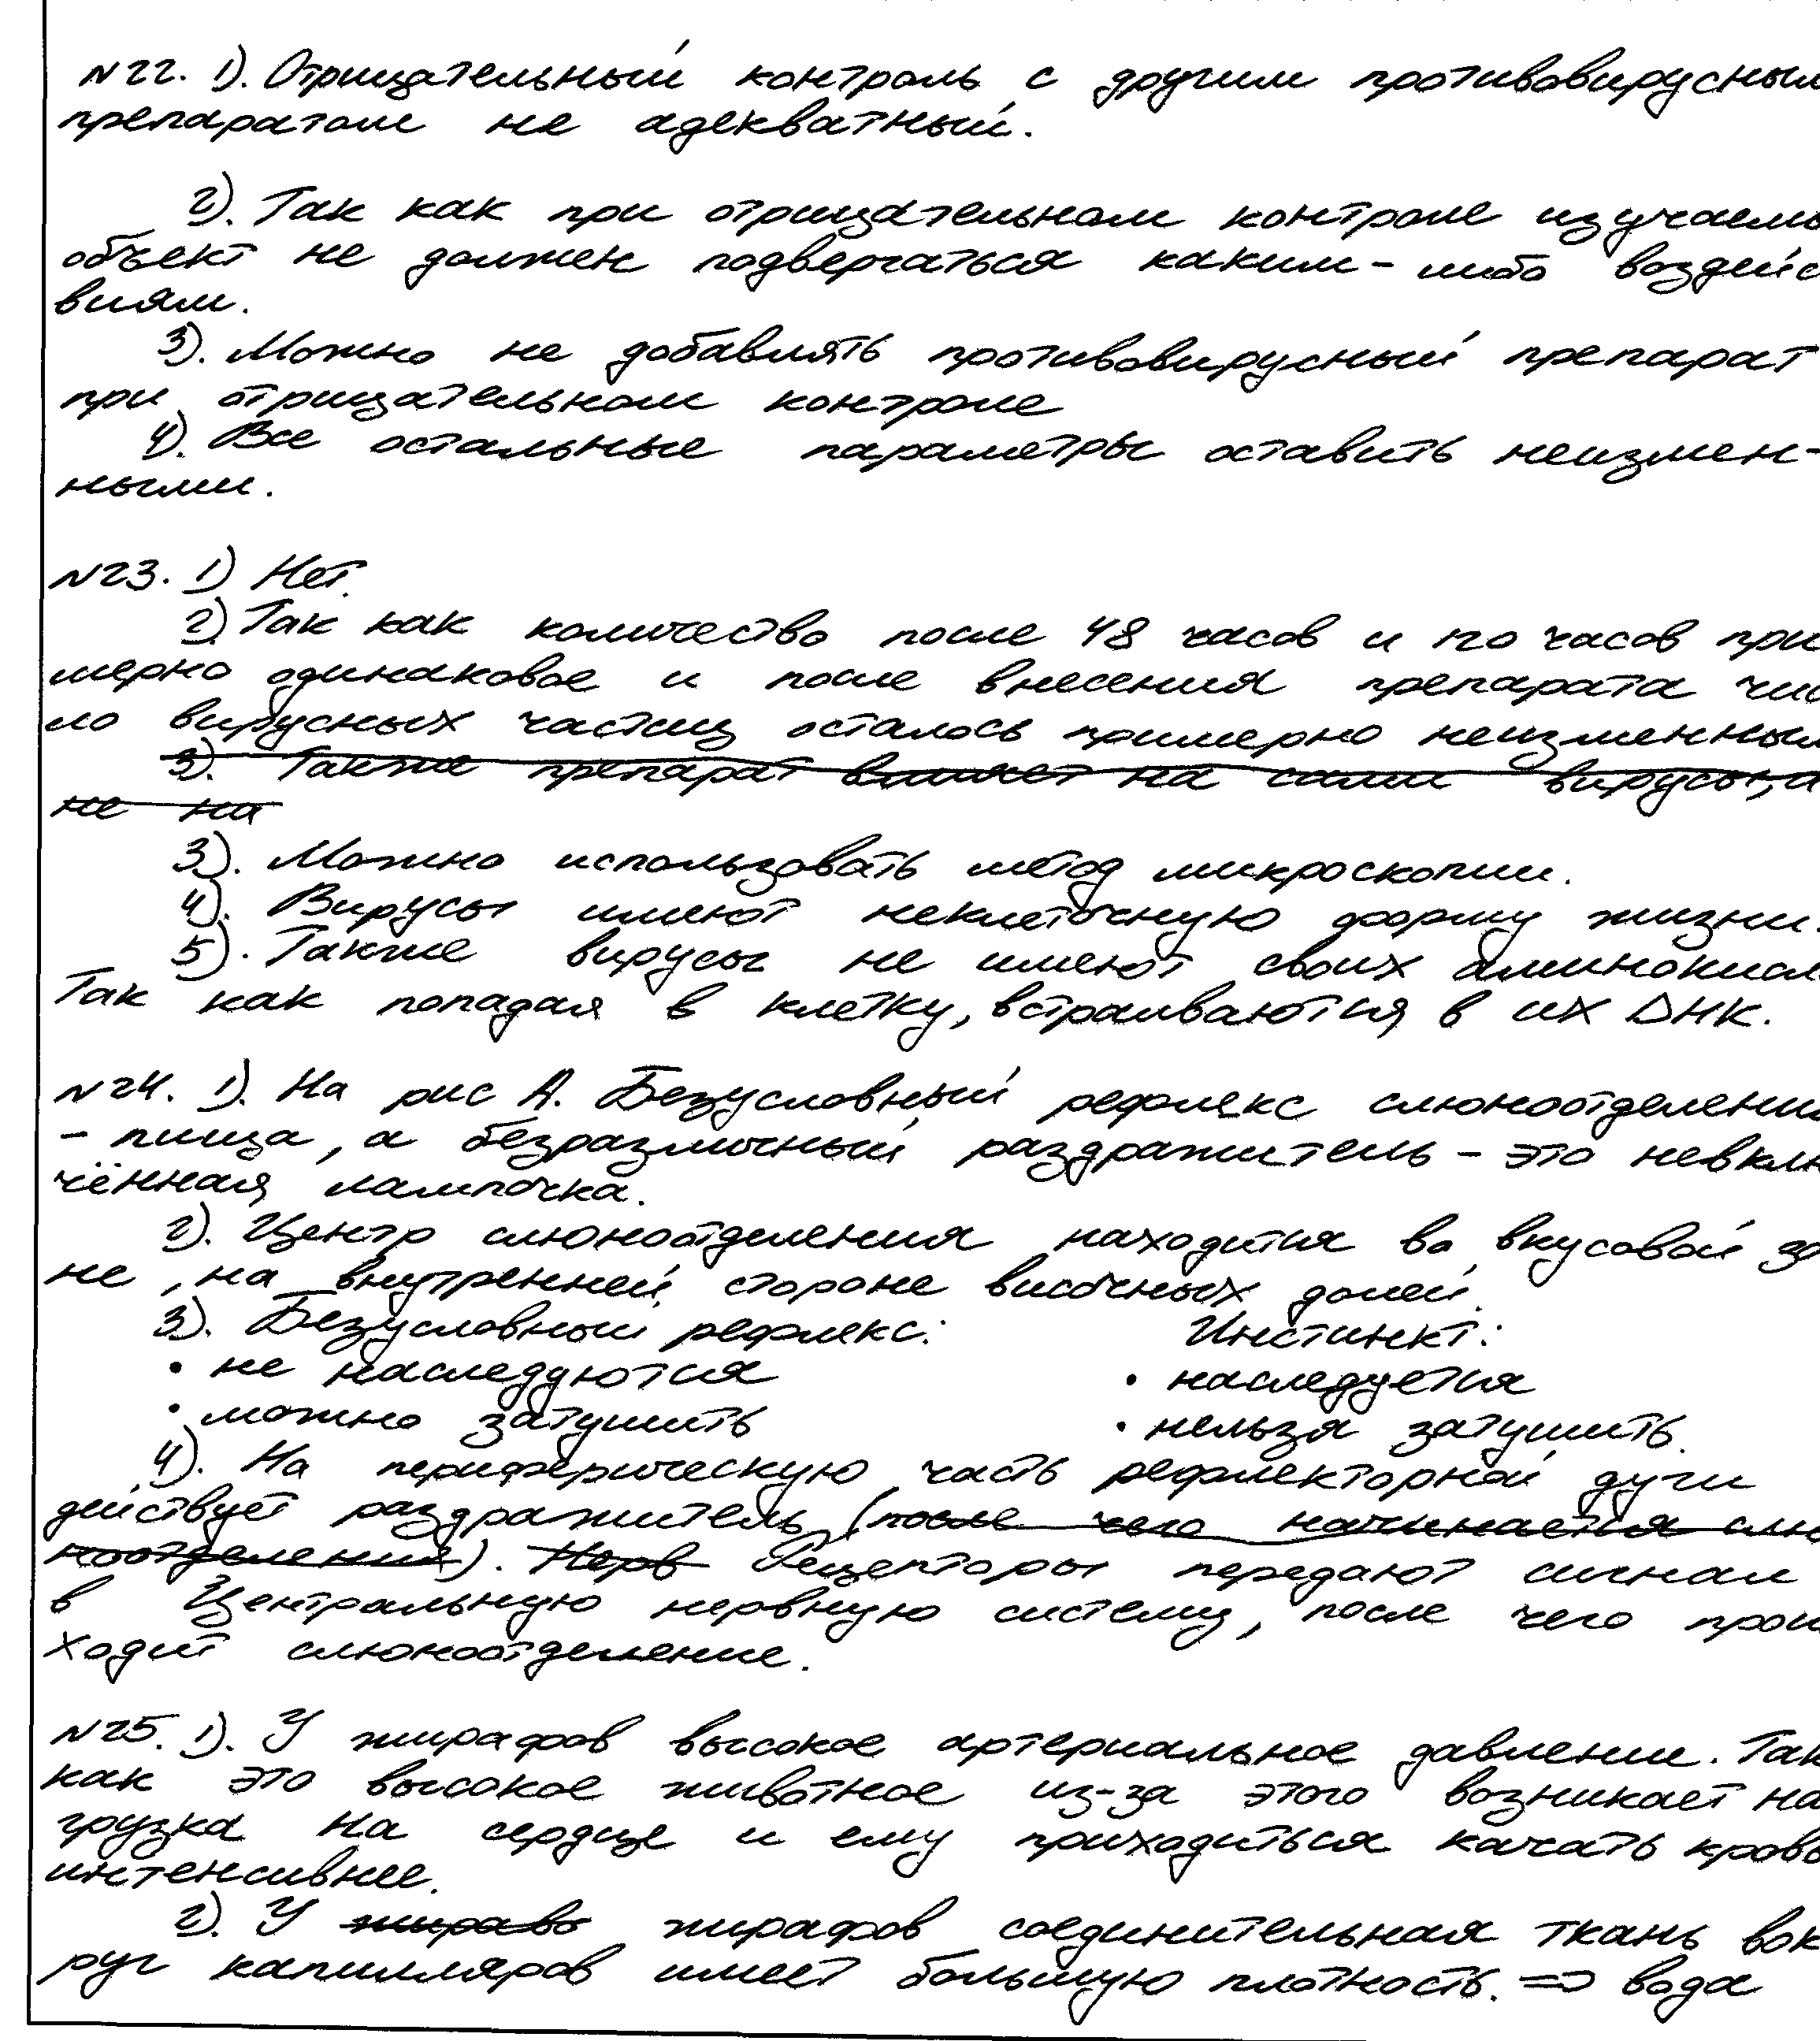 №22. 1). Отрицательный контроль с другим противовирусным
препаратом не адекватный.
2). Так как при отрицательном контроле изучаемы
объект не должен подвергаться каким-либо воздейс
виям.
3). Можно не добавлять противовирусный препарат
при отрицательном контроле
4). Все остальные параметры оставить неизмен-
ными.
№23. 1) Нет.
2) Так как количество после 48 часов и 120 часов при
мерно одинаковое и после внесения препарата чис
ло вирусных частиц осталось примерно неизменным
3). Также препарат влияет на сами вирусы, а
не на
3). Можно использовать метод микроскопии.
4). Вирусы имеют неклеточную форму жизни.
5). Также вирусы не имеют своих аминокисл
Так как попадая в клетку, встраиваются в их ДНК.
№24. 1). На рис А. Безусловный рефлекс слюноотделени
- пища, а безразличный раздражитель - это невклю
чённая лампочка.
2). Центр слюноотделения находится во вкусовой зо
не, на внутренней стороне височных долей.
3). Безусловный рефлекс: Инстинкт:
• не наследуются • наследуется
• можно затушить • нельзя затушить.
4). На периферическую часть рефлекторной дуги
действует раздражитель (после чего начинается слю
ноотделения). Нерв Рецепторы передают сигнал
в Центральную нервную систему, после чего прои
ходит слюноотделение.
№25. 1). У жирафов высокое артериальное давление. Так
как это высокое животное из-за этого возникает на
грузка на сердце и ему приходиться качать кровь
интенсивнее.
2). У жираво жирафов соединительная ткань вок
руг капилляров имеет большую плотность. => вода